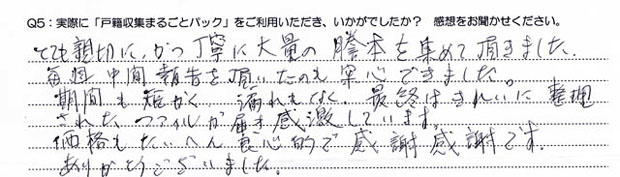 Q5：実際に「戸籍収集まるごとパック」をご利用いただき、いかがでしたか？ 感想をお聞かせください。
とても親切に、かつ丁寧に大量の謄本を集めて頂きました。
毎週中間報告を頂いたのも安心できました。
期間も短かく 漏れもなく、最終はきれいに整理
されたファイルが届き感激しています。
価格もたいへん良心的で感謝感謝です。
ありがとうございました。